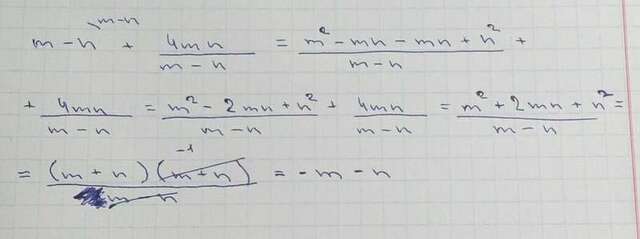 m - n \m-n + 4mn/(m - n) = (m² - mn - mn + n²)/(m - n) +
+ 4mn/(m - n) = (m² - 2mn + n²)/(m - n) + 4mn/(m - n) = (m² + 2mn + n²)/(m - n) =
= (m + n)(m + n) -1/(m - n) = - m - n